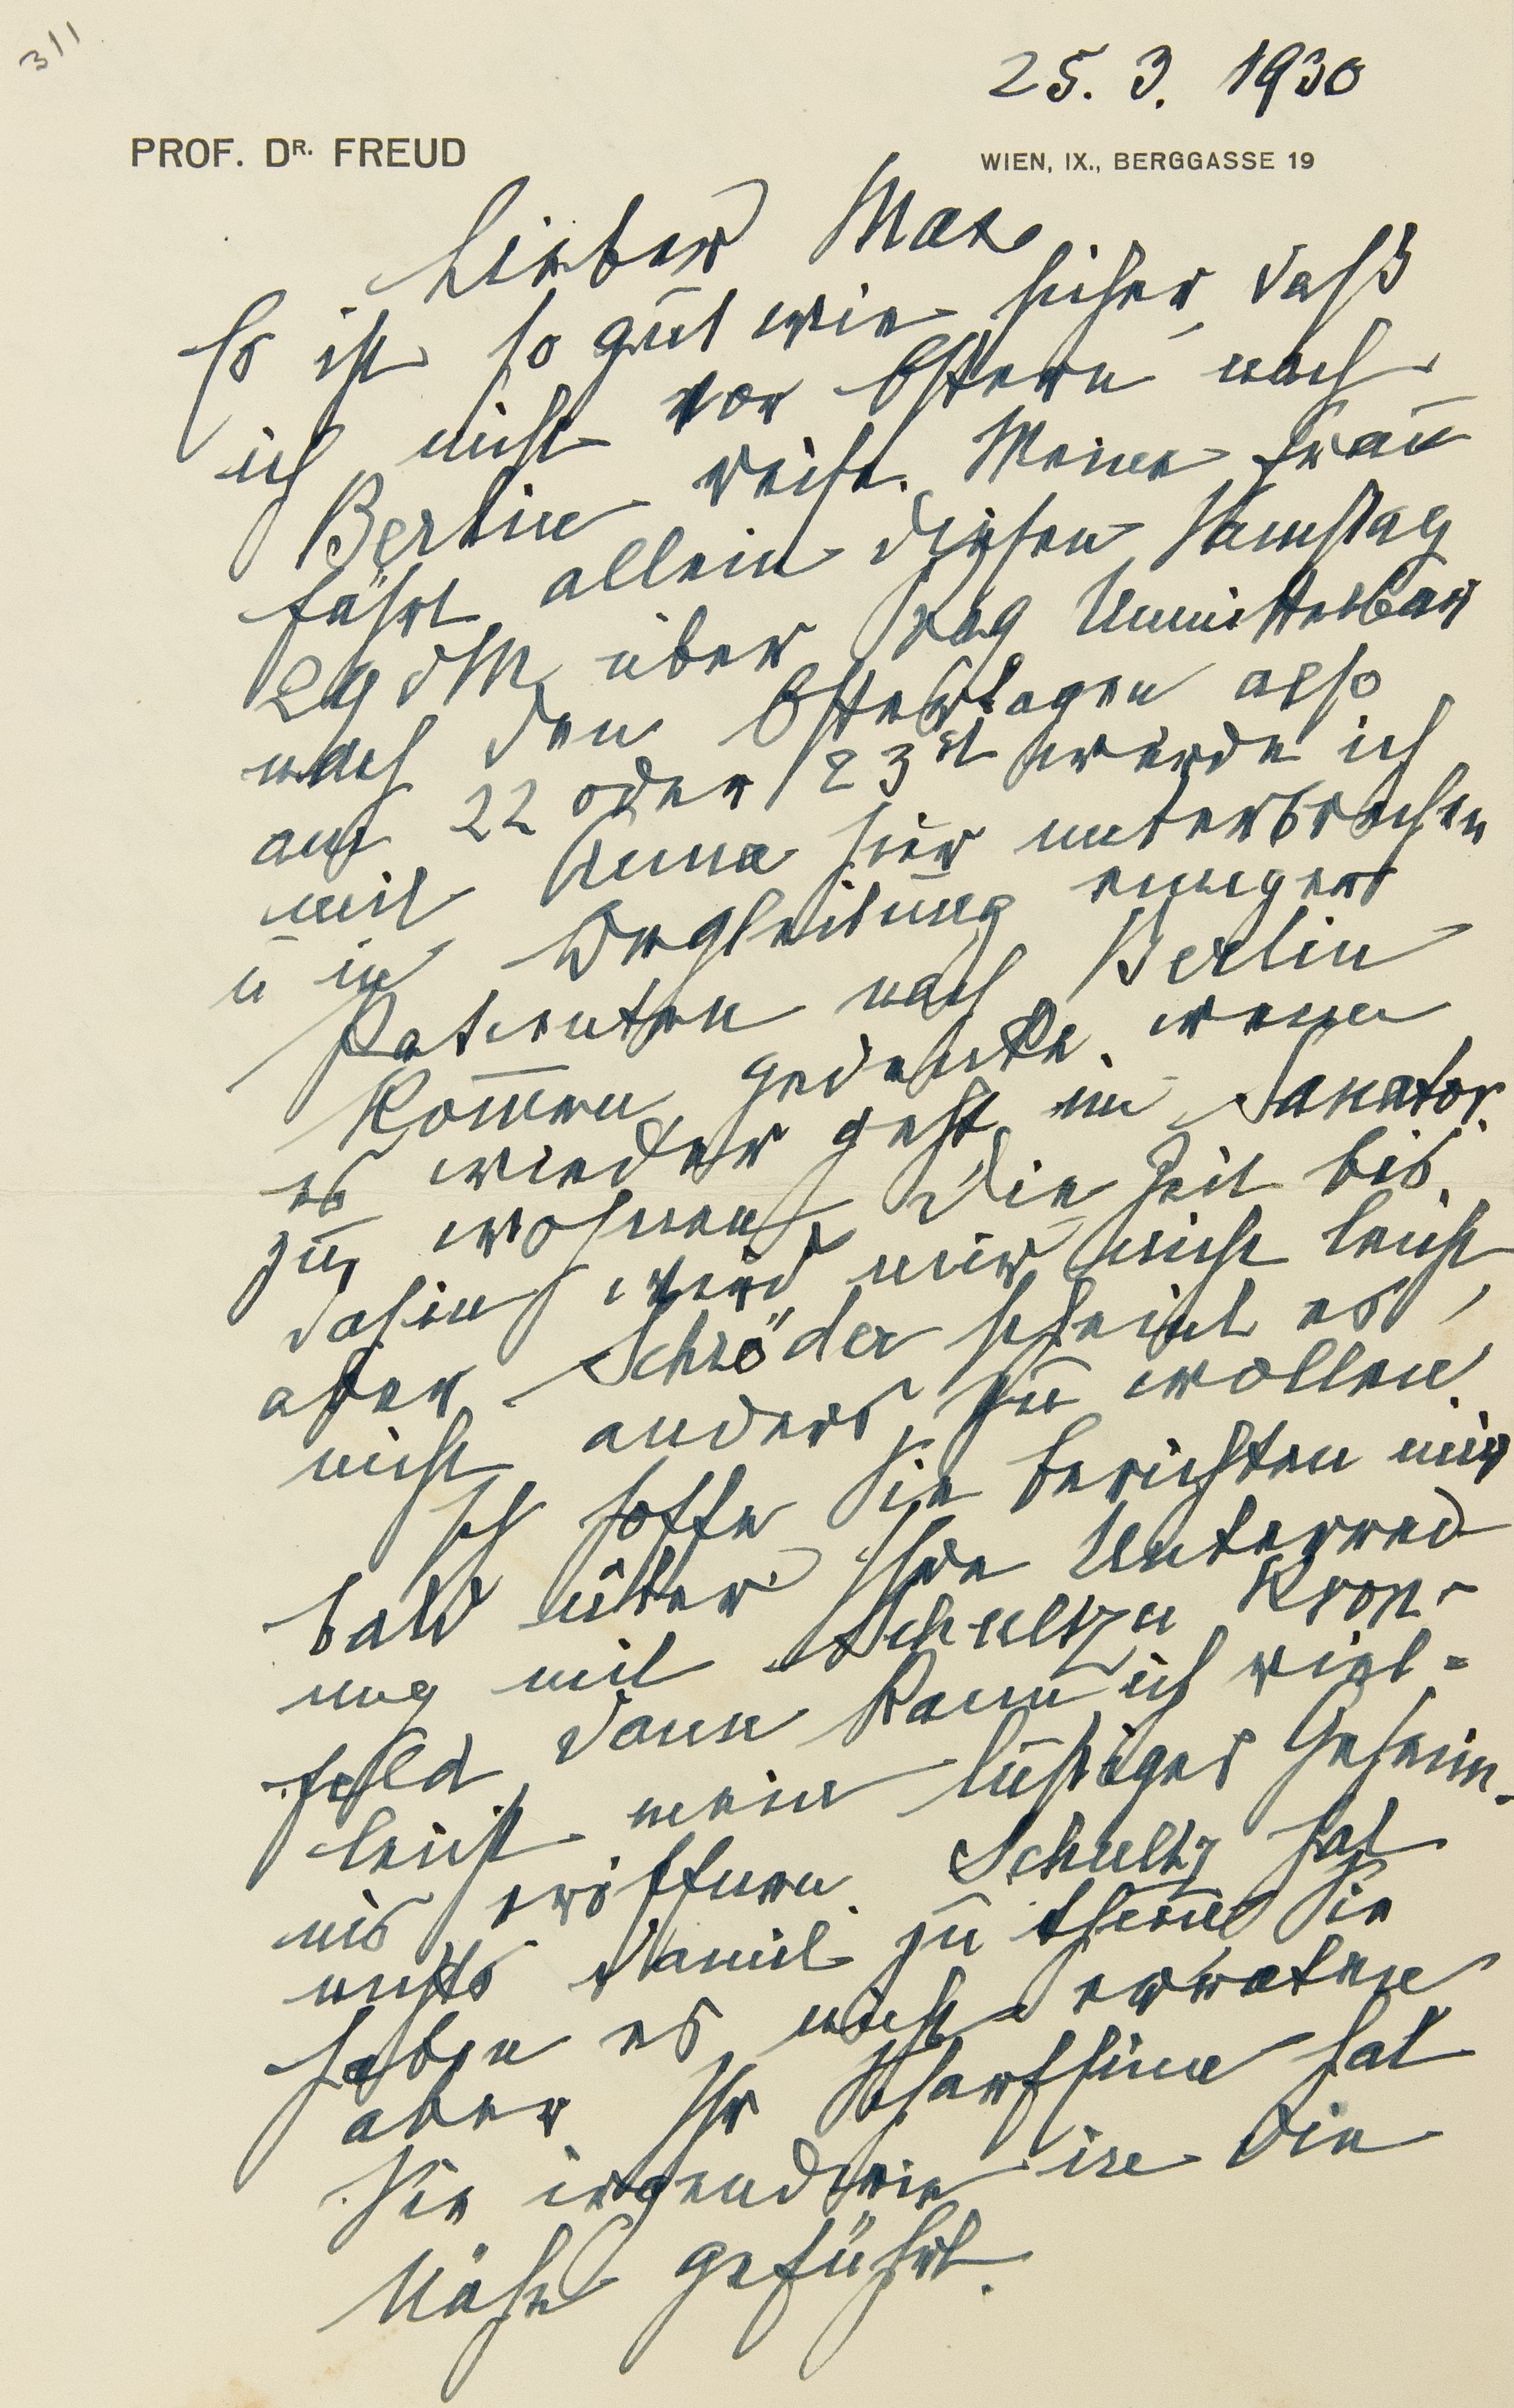 311
25. 3. 1930
PROF. DR. FREUD
WIEN, IX., BERGGASSE 19
Lieber Max
Es ist so gut wie sicher, daß
ich nicht vor Ostern nach
Berlin reise. Meine Frau
fährt allein diesen Samstag
29 d M über Prag Unmittelbar
nach den Ostertagen also
am 22 oder 23st werde ich
mit Anna hier unterbrechen
u in Begleitung einiger
Patienten nach Berlin
kom̄en gedenke, wenn
es wieder geht im Sanator.
zu wohnen. Die Zeit bis
dahin wird mir nicht leicht,
aber Schröder scheint es
nicht anders zu wollen.
Ich hoffe Sie berichten mir
bald über Ihre Unterred
ung mit Schultz-
feld, dann kann ich viel=
leicht mein lustiges Geheim-
nis eröffnen. Schultz hat
nichts damit zu thun, Sie
haben es nicht erraten
aber Ihr Scharfsinn hat
Sie irgendwie in die
Nähe geführt.